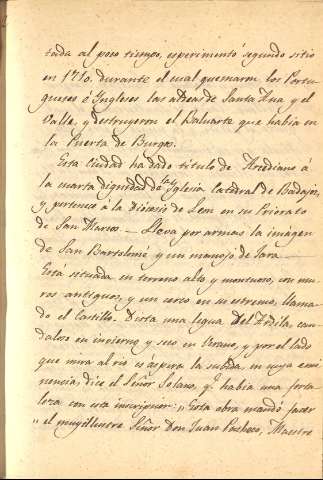 tada al poco tiempo, esperimentó segundo sitio
en 1710. durante el cual quemaron los Portu-
gueses é Yngleses las aldeas de Santa Ana y el
Valle, y destruyeron el Baluarte que habia en
la Puerta de Burgos.
Esta Ciudad ha dado titulo de Arcediano á
la cuarta dignidad de la Yglesia catedral de Badajoz,
y pertenece á la Diócesis de Leon en su Priorato
de San Marcos — Lleva por armas la imágen
de San Bartolomé y un manojo de Jara —
Esta situada en terreno alto y montuoso, con mu-
ros antiguos, y un cerro en su estremo, llama-
do el Castillo. Dista una legua del Ardila, cau-
daloso en invierno y seco en Verano, y por el lado
que mira al rio es áspera la subida, en cuya emi-
nencia, dice el Señor Solano, qe. habia una forta-
leza con esta inscripcion: "Esta obra mandó facer
" el muy illustre Señor Don Juan Pacheco, Maestre